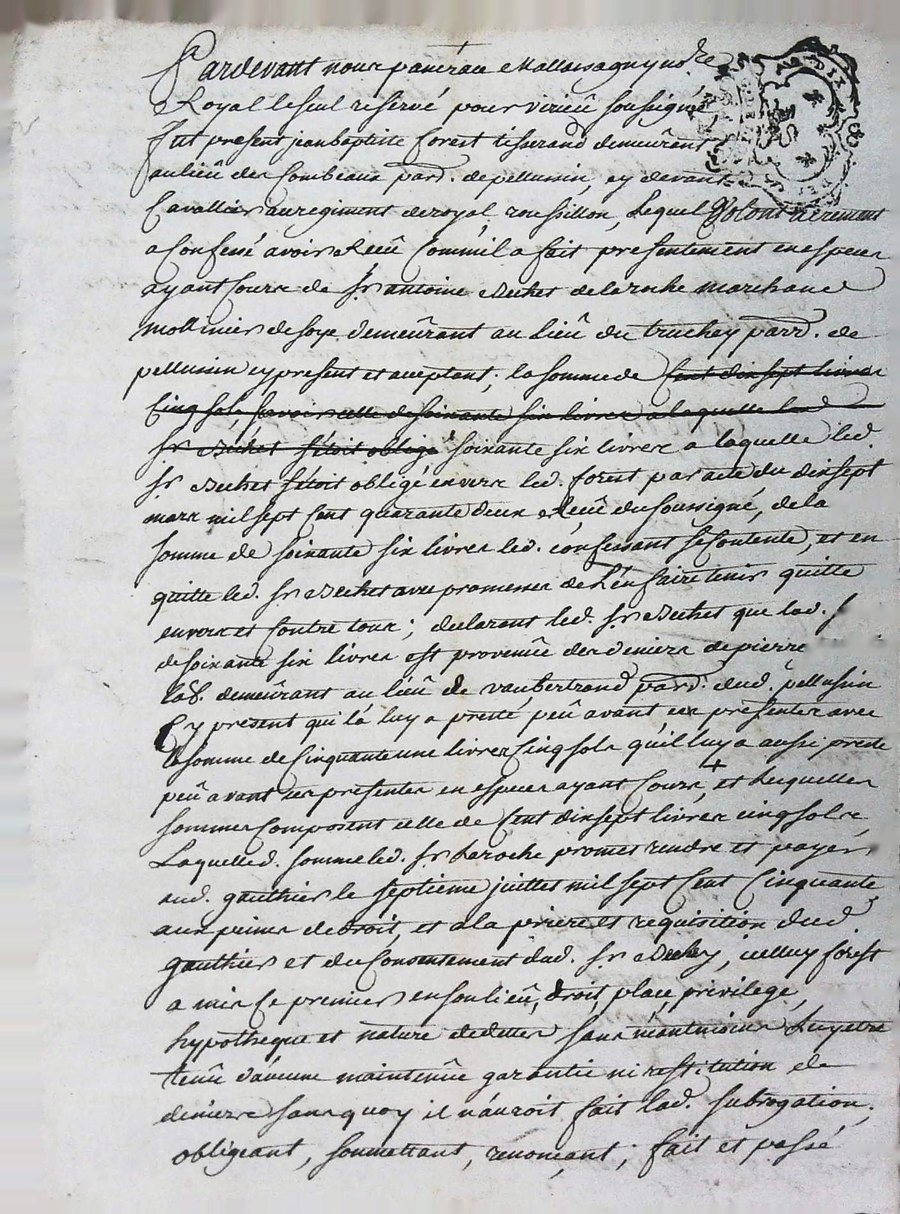 Pardevant nous pancrace Mallassagny no.re
Royal le seul reservé pour virieû soussigné
fut present jean baptiste forest tisserand demeûrant
au lieû des Combeaux parr. de pellussin, cy devant
Cavallier au regiment de royal roussillon, Lequel Volontairement
a Confessé avoir Reçû Comm'il a fait presentement en especes
ayant Cours de Sr antoine Bechet de laroche marchand
mollinier de soye demeûrant au Lieû du truchey parr. de
pellussin cy present et aceptant, la somme de Cent dix sept livres
Cinq sols, savoir celle de soixante six livres a laquelle led.
Sr Bechet s'étoit obligé soixante six livres a laquelle led.
Sr Bechet s'étoit obligé envers led. forest par acte du dix sept
mars mil sept Cent quarante deux Reçû du soussigné, de la
somme de soixante six livres led. confessant se Contente, et en
quitte led. Sr Bechet avec promesses de L'en faire tenir quitte
envers et Contre tous; declarant led. Sr Bechet que lad. s
de soixante six livres est provenüe des deniers de pierre
lab. demeûrant au lieû de vaubertrand parr. dud. pellussin
Cy present qui la luy a presté peû avant ces presentes avec
la somme de Cinquante une livres Cinq sols qu'il luy a aussi presté
peû avant ces presentes en especes ayant Cours, + et Lesquelles
sommes Composent celle de Cent dix sept livres cinq sols
Laquelle d. somme led. Sr Laroche promet rendre et payer
aud. gauthier le septieme juillet mil sept Cent Cinquante
aux peines de droit, et a la priere et requisition dud.
gauthier et du Consentement dud. Sr Bechet, icelluy forest
a mis Ce premier en son lieû, droit, place, privilege,
hypotheque et nature de dettes sans neantmoins Luy etre
tenû d'aucune maintenüe garantie ni restitution de
deniers sans quoy il n'auroit fait lad. subrogation,
obligeant, soumettant, renonçant; fait et passé